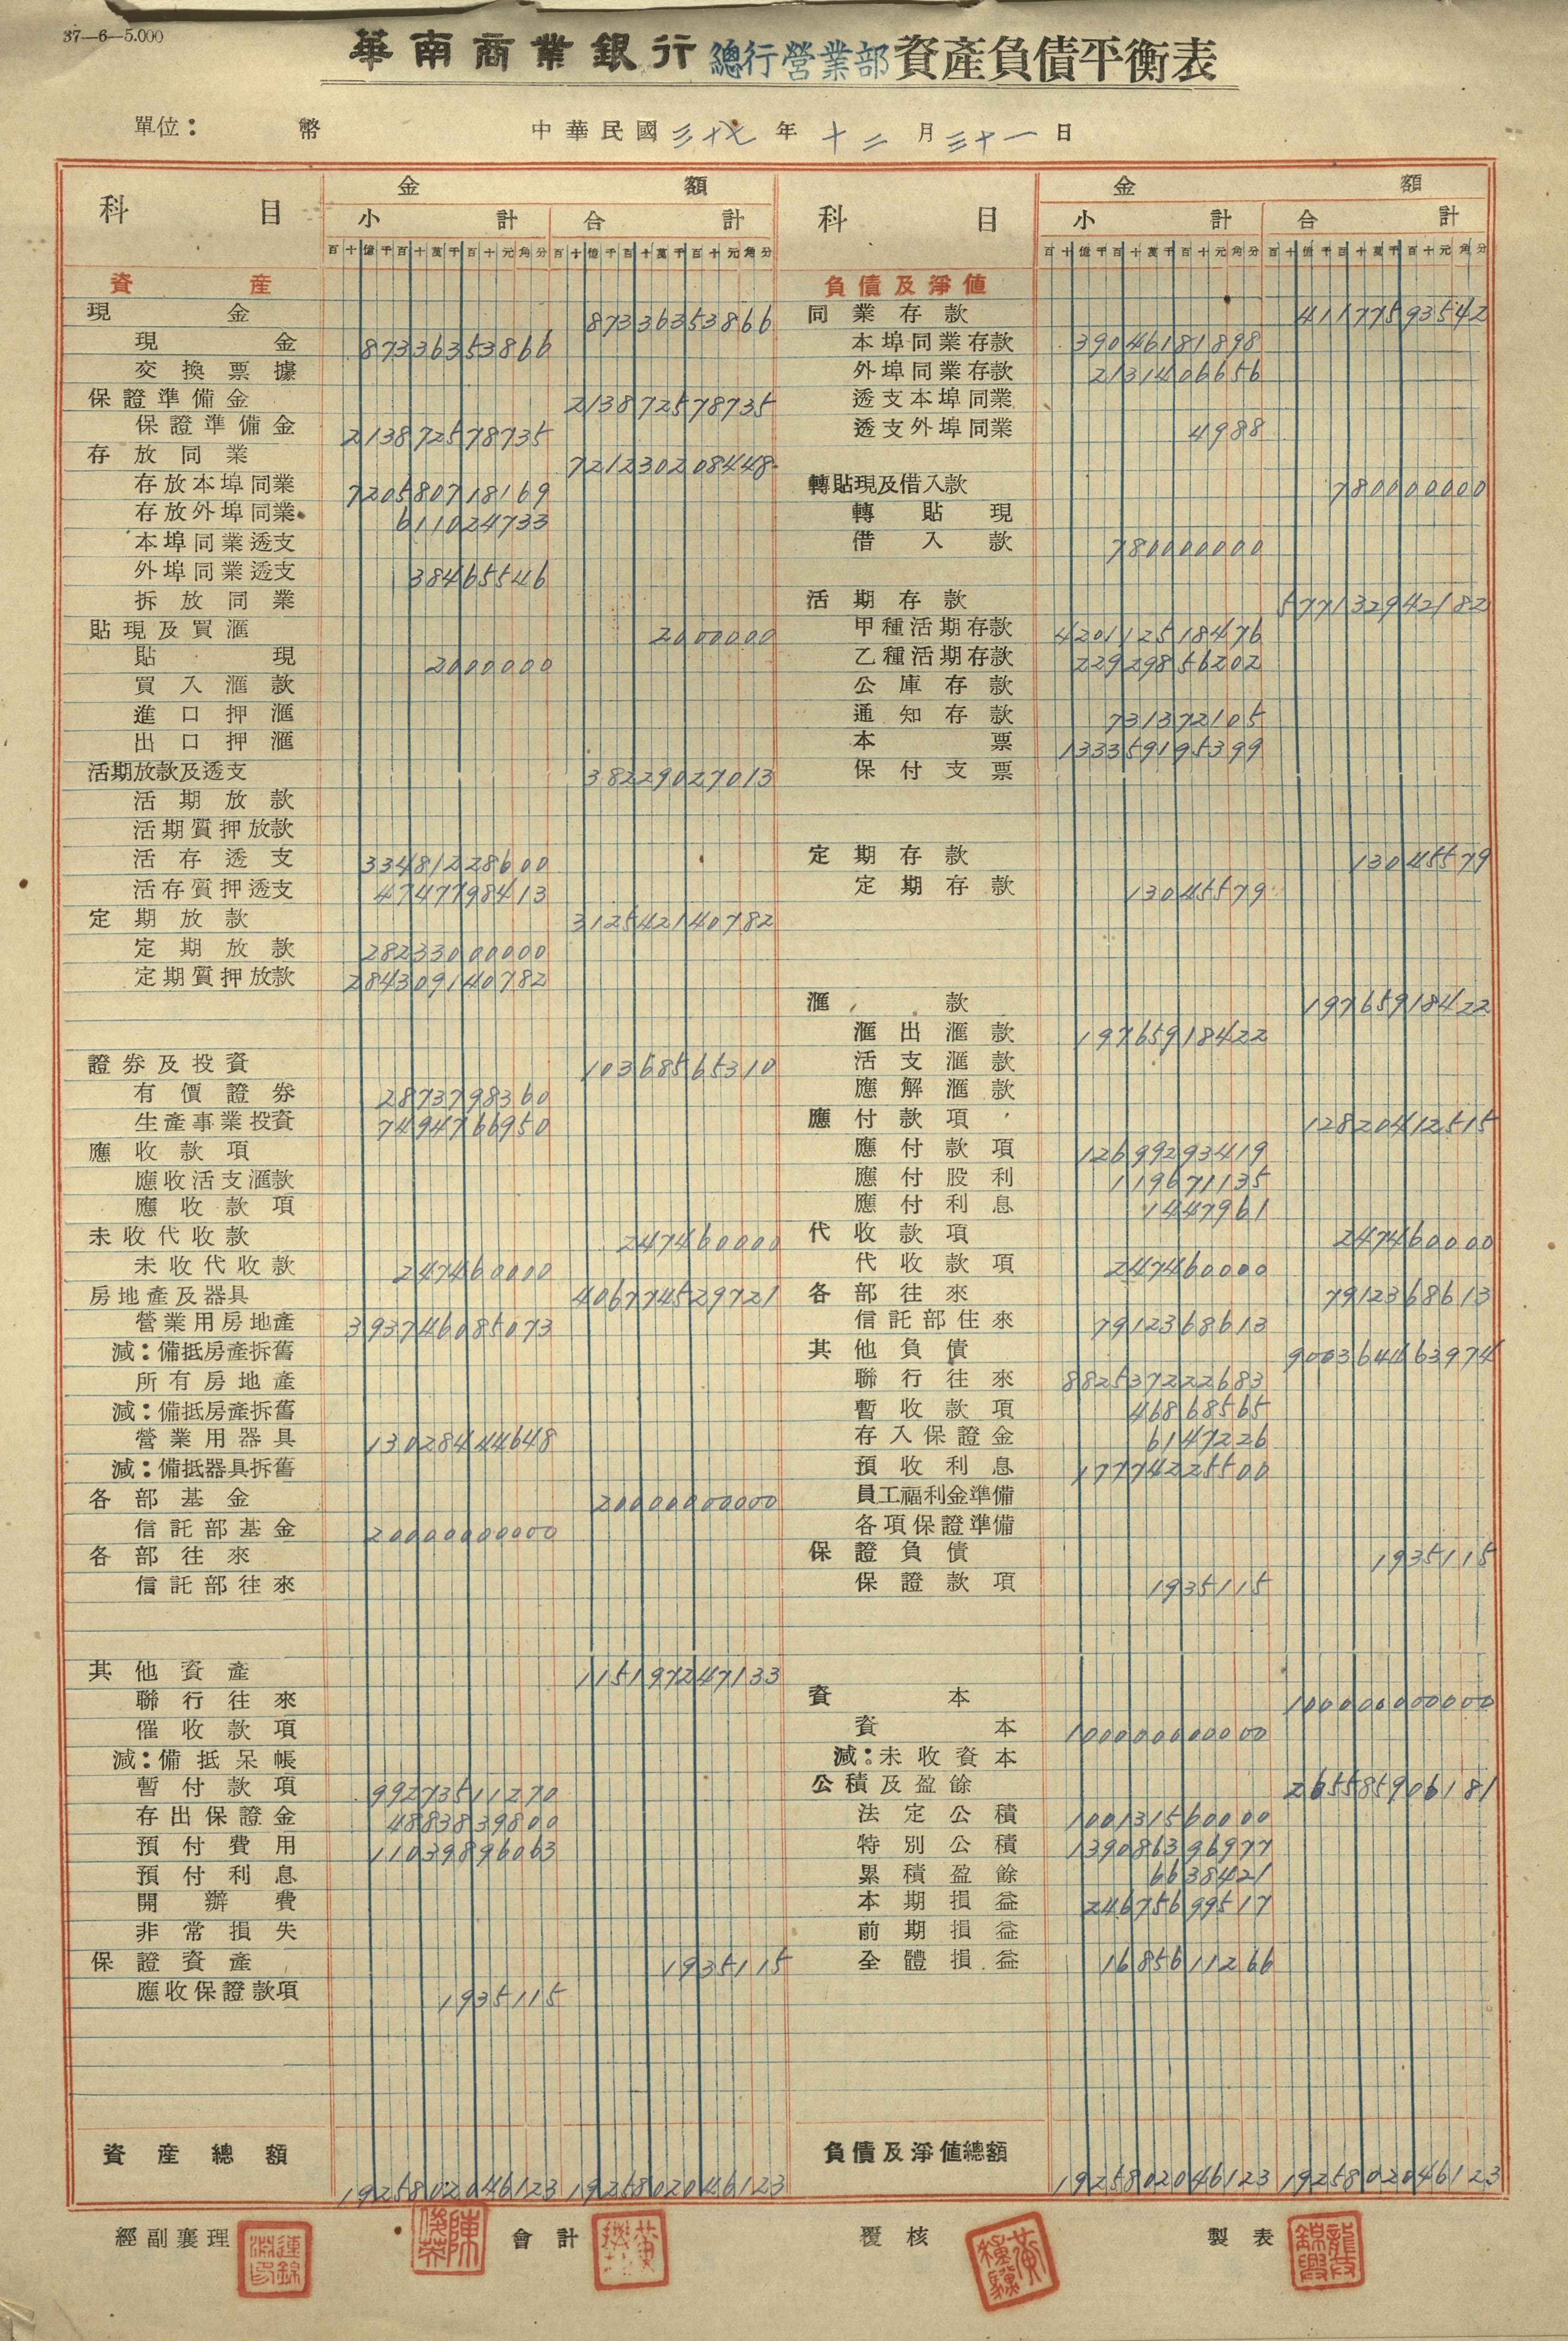 37—6—5.000
華南商業銀行總行營業部資產負債平衡表
單位： 幣 中華民國三十七年十二月三十一日
科目 金額 科目 金額
小計 合計 小計 合計
百十億千百十萬千百十元角分 百十億千百十萬千百十元角分 百十億千百十萬千百十元角分 百十億千百十萬千百十元角分
資產
現金 87336353866
現金 87336353866
交換票據
保證準備金 213872578735
保證準備金 213872578735
存放同業 721230208448
存放本埠同業 720580718169
存放外埠同業 611024733
本埠同業透支
外埠同業透支 38465546
拆放同業
貼現及買滙 2000000
貼現 2000000
買入滙款
進口押滙
出口押滙
活期放款及透支 38229027013
活期放款
活期質押放款
活存透支 33481228600
活存質押透支 4747798413
定期放款 312542140782
定期放款 28233000000
定期質押放款 284309140782
證券及投資 10368565310
有價證券 2873798360
生產事業投資 7494766950
應收款項
應收活支滙款
應收款項
未收代收款 247460000
未收代收款 247460000
房地產及器具 406774529721
營業用房地產 393746085073
減：備抵房產拆舊
所有房地產
減：備抵房產拆舊
營業用器具 13028444648
減：備抵器具拆舊
各部基金 20000000000
信託部基金 20000000000
各部往來
信託部往來
其他資產 115197247133
聯行往來
催收款項
減：備抵呆帳
暫付款項 99273511270
存出保證金 4883839800
預付費用 11039896063
預付利息
開辦費
非常損失
保證資產 1935115
應收保證款項 1935115
資產總額 1925802046123 1925802046123
負債及淨值
同業存款 41177593542
本埠同業存款 39046181898
外埠同業存款 2131406656
透支本埠同業
透支外埠同業 4988
轉貼現及借入款 780000000
轉貼現
借入款 780000000
活期存款 577132942182
甲種活期存款 420112518476
乙種活期存款 22929856202
公庫存款
通知存款 731372105
本票 133359195399
保付支票
定期存款 13045579
定期存款 13045579
滙款 19765918422
滙出滙款 19765918422
活支滙款
應解滙款
應付款項 12820412515
應付款項 12699293419
應付股利 119671135
應付利息 1447961
代收款項 247460000
代收款項 247460000
各部往來 7912368613
信託部往來 7912368613
其他負債 900364463974
聯行往來 882537222683
暫收款項 46868565
存入保證金 6147226
預收利息 17774225500
員工福利金準備
各項保證準備
保證負債 1935115
保證款項 1935115
資本 100000000000
資本 100000000000
減：未收資本
公積及盈餘 265585906181
法定公積 100131560000
特別公積 139086396977
累積盈餘 6638421
本期損益 24675699517
前期損益
全體損益 1685611266
負債及淨值總額 1925802046123 1925802046123
經副襄理 會計 覆核 製表